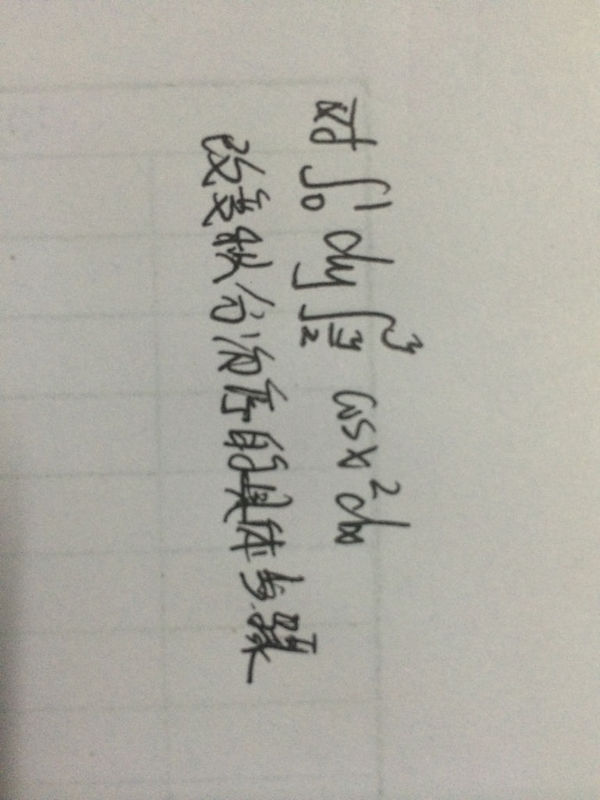 对∫₀¹ dy ∫_{y/2}^{y} cosx² dx
改变积分次序的具体步骤